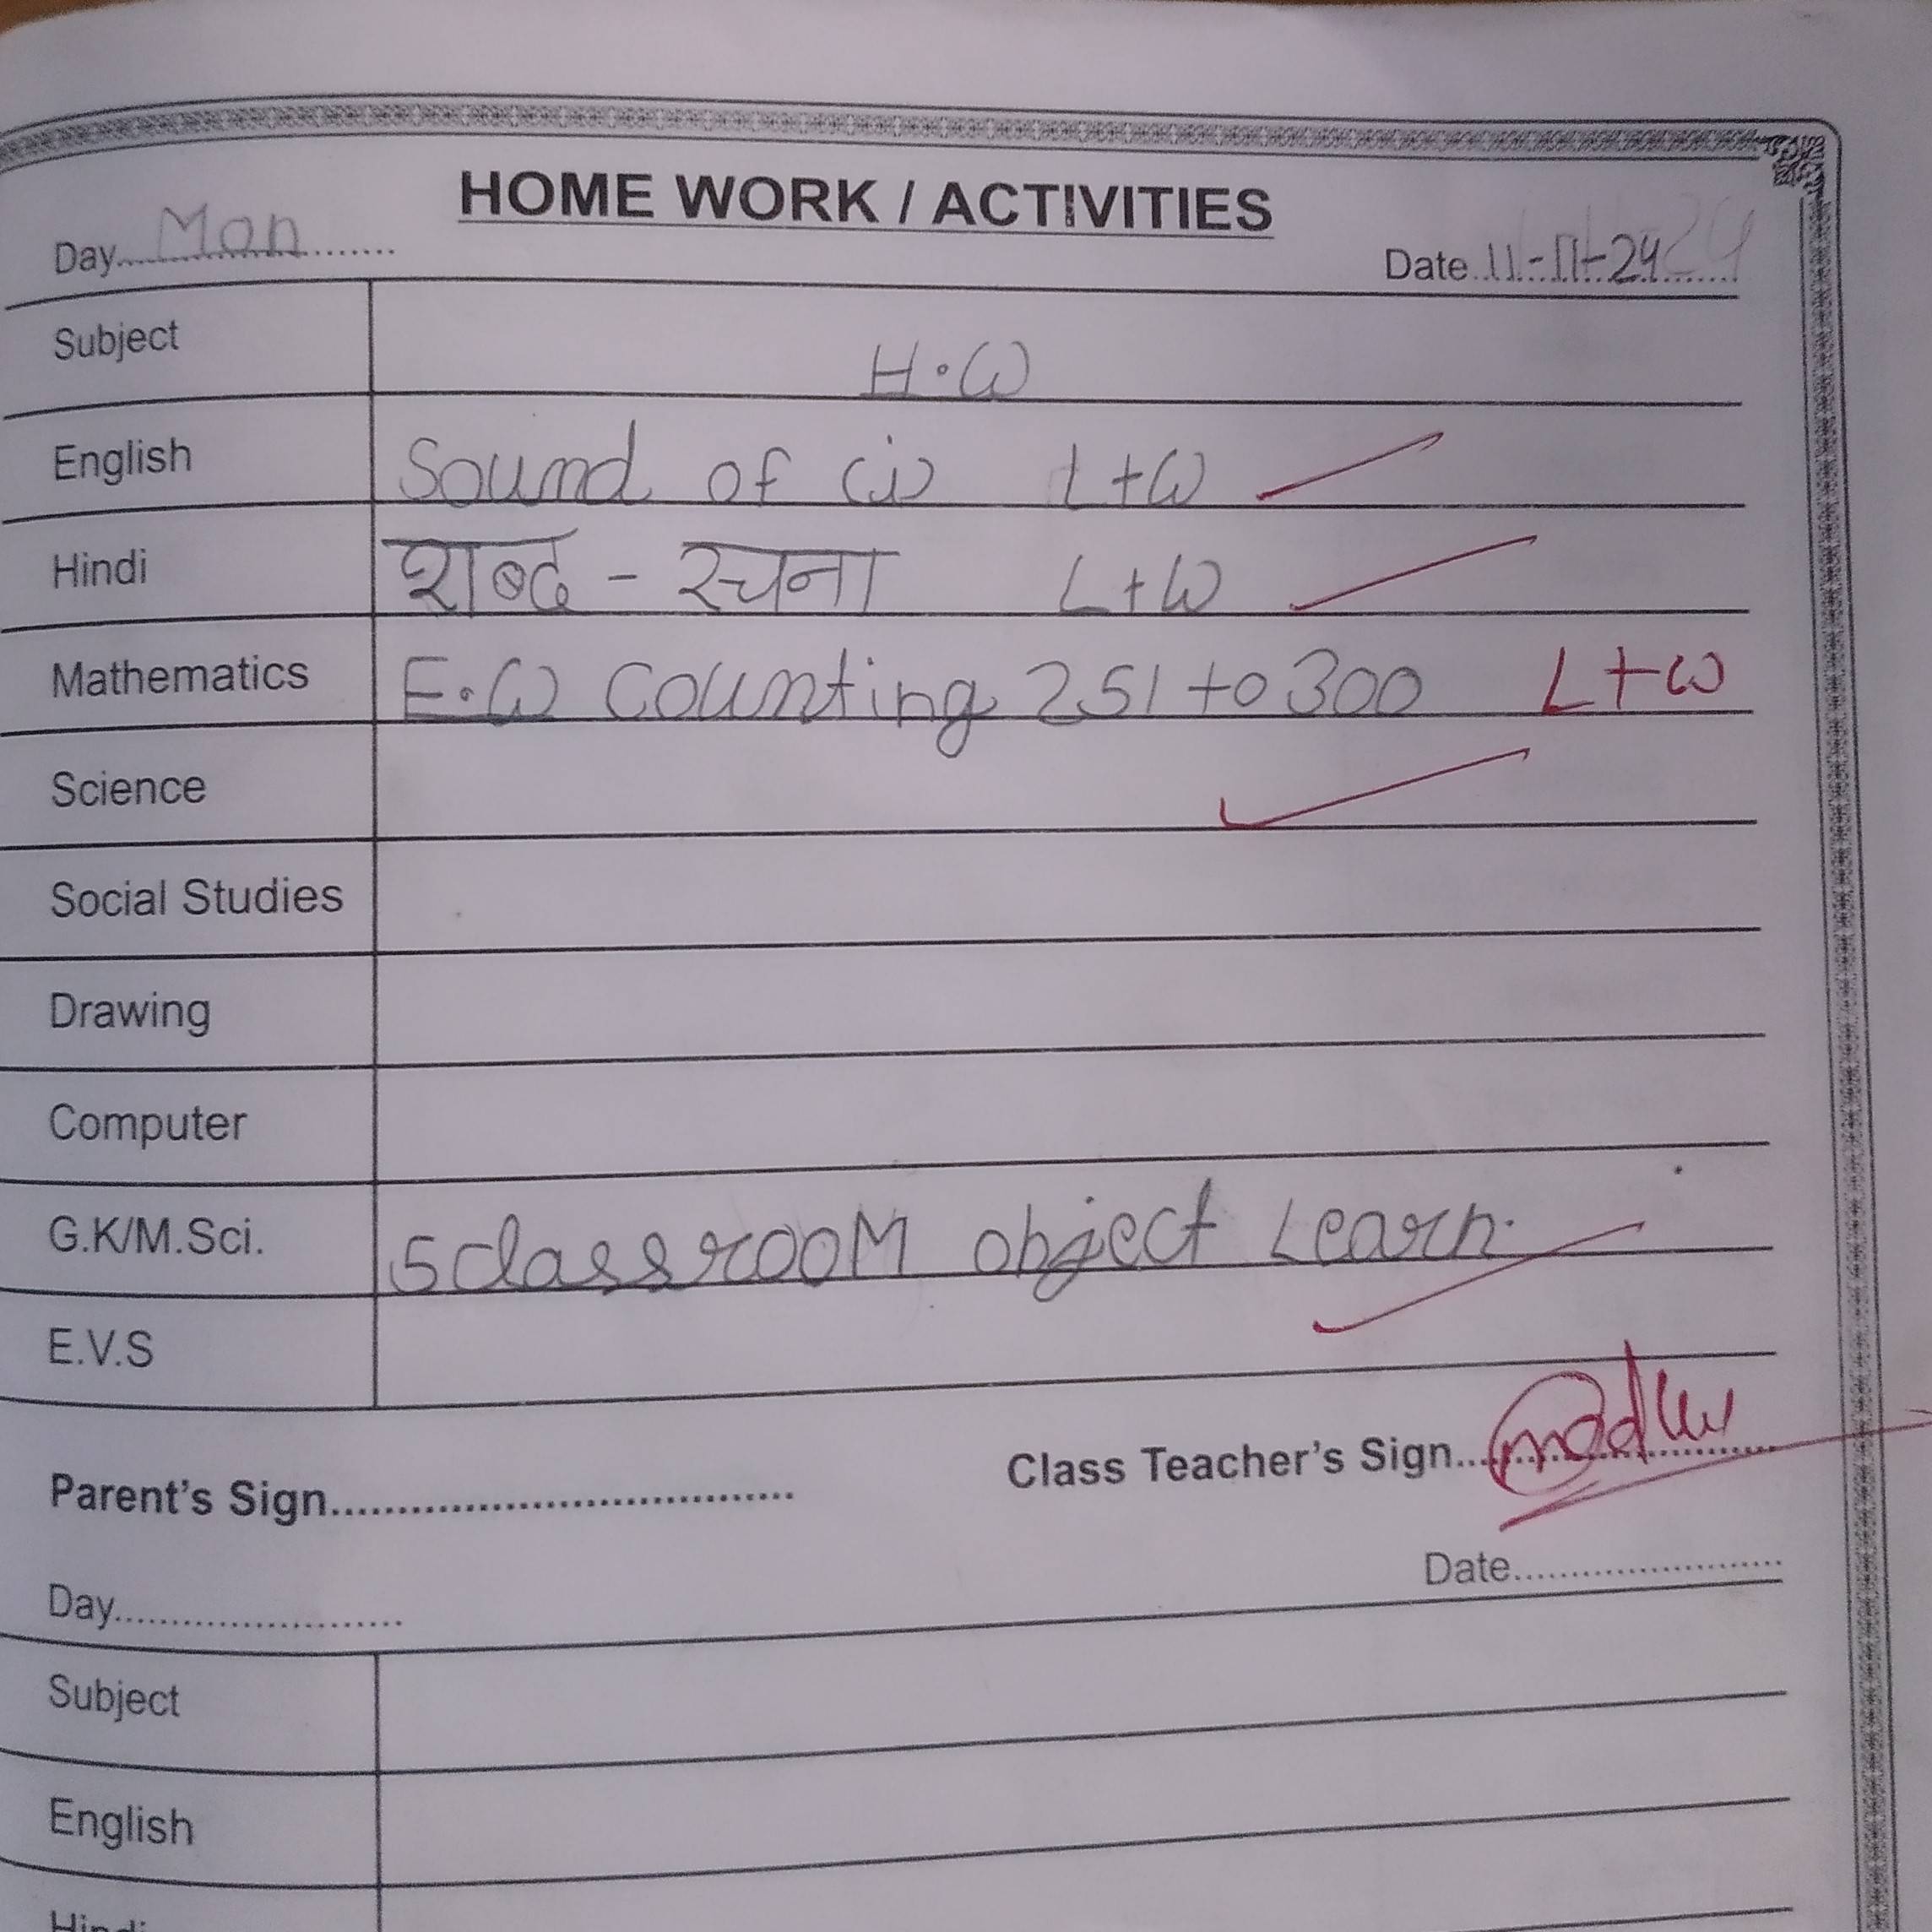 HOME WORK / ACTIVITIES
Day Mon Date 11-11-24
Subject H.W
English Sound of (i) L+W
Hindi शब्द - रचना L+W
Mathematics E.W Counting 251 to 300 L+W
Science
Social Studies
Drawing
Computer
G.K/M.Sci. 5 classrooM object Learn.
E.V.S
Parent's Sign Class Teacher's Sign Madhu
Day Date
Subject
English
Hindi